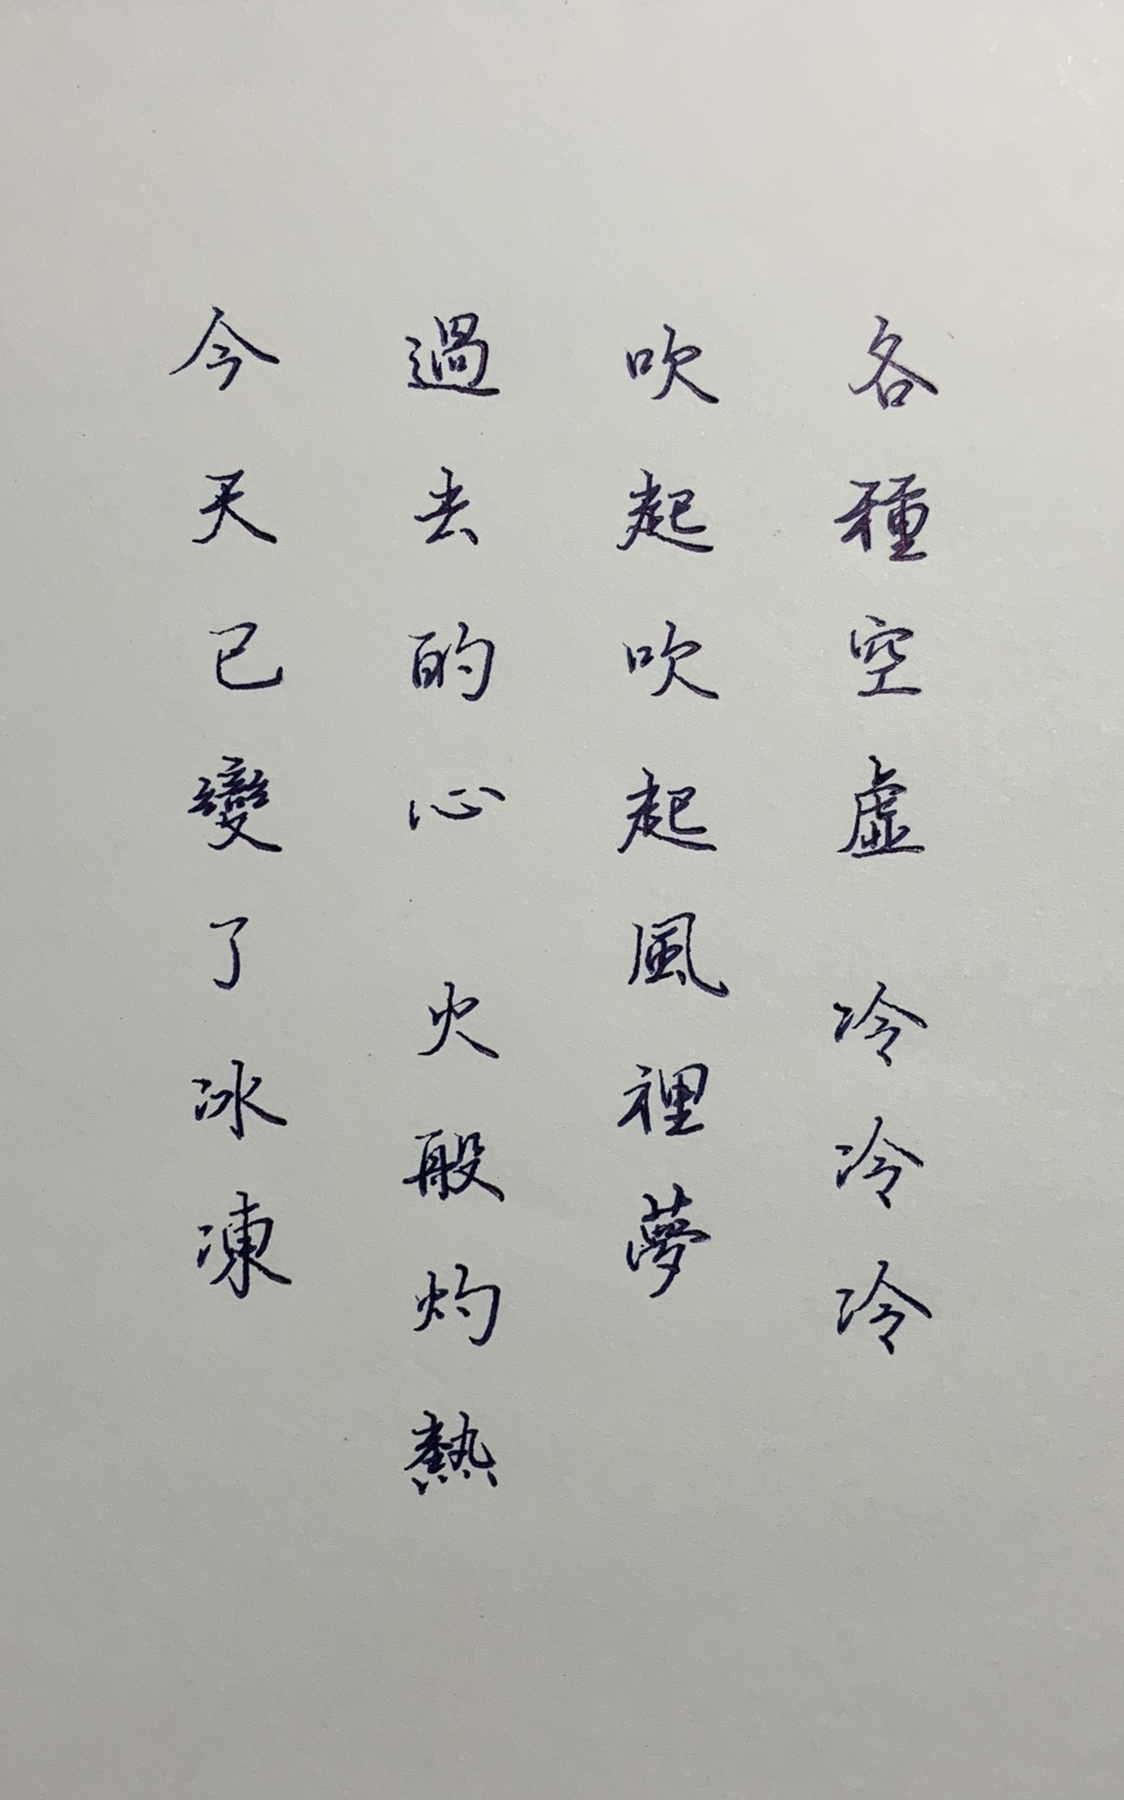 各種空虛 冷冷冷
吹起吹起風裡夢
過去的心 火般灼熱
今天已變了冰凍